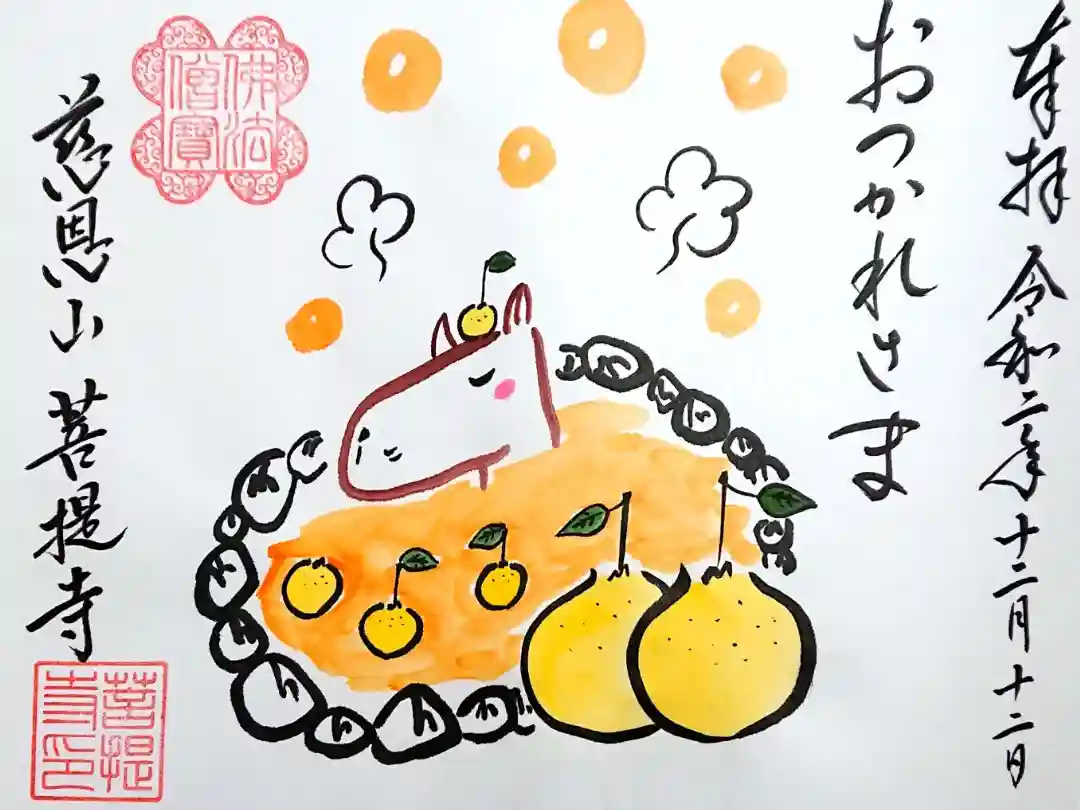 奉拝 令和二年十二月十二日
おつかれさま
佛法
僧寶
慈恩山 菩提寺
菩提
寺印